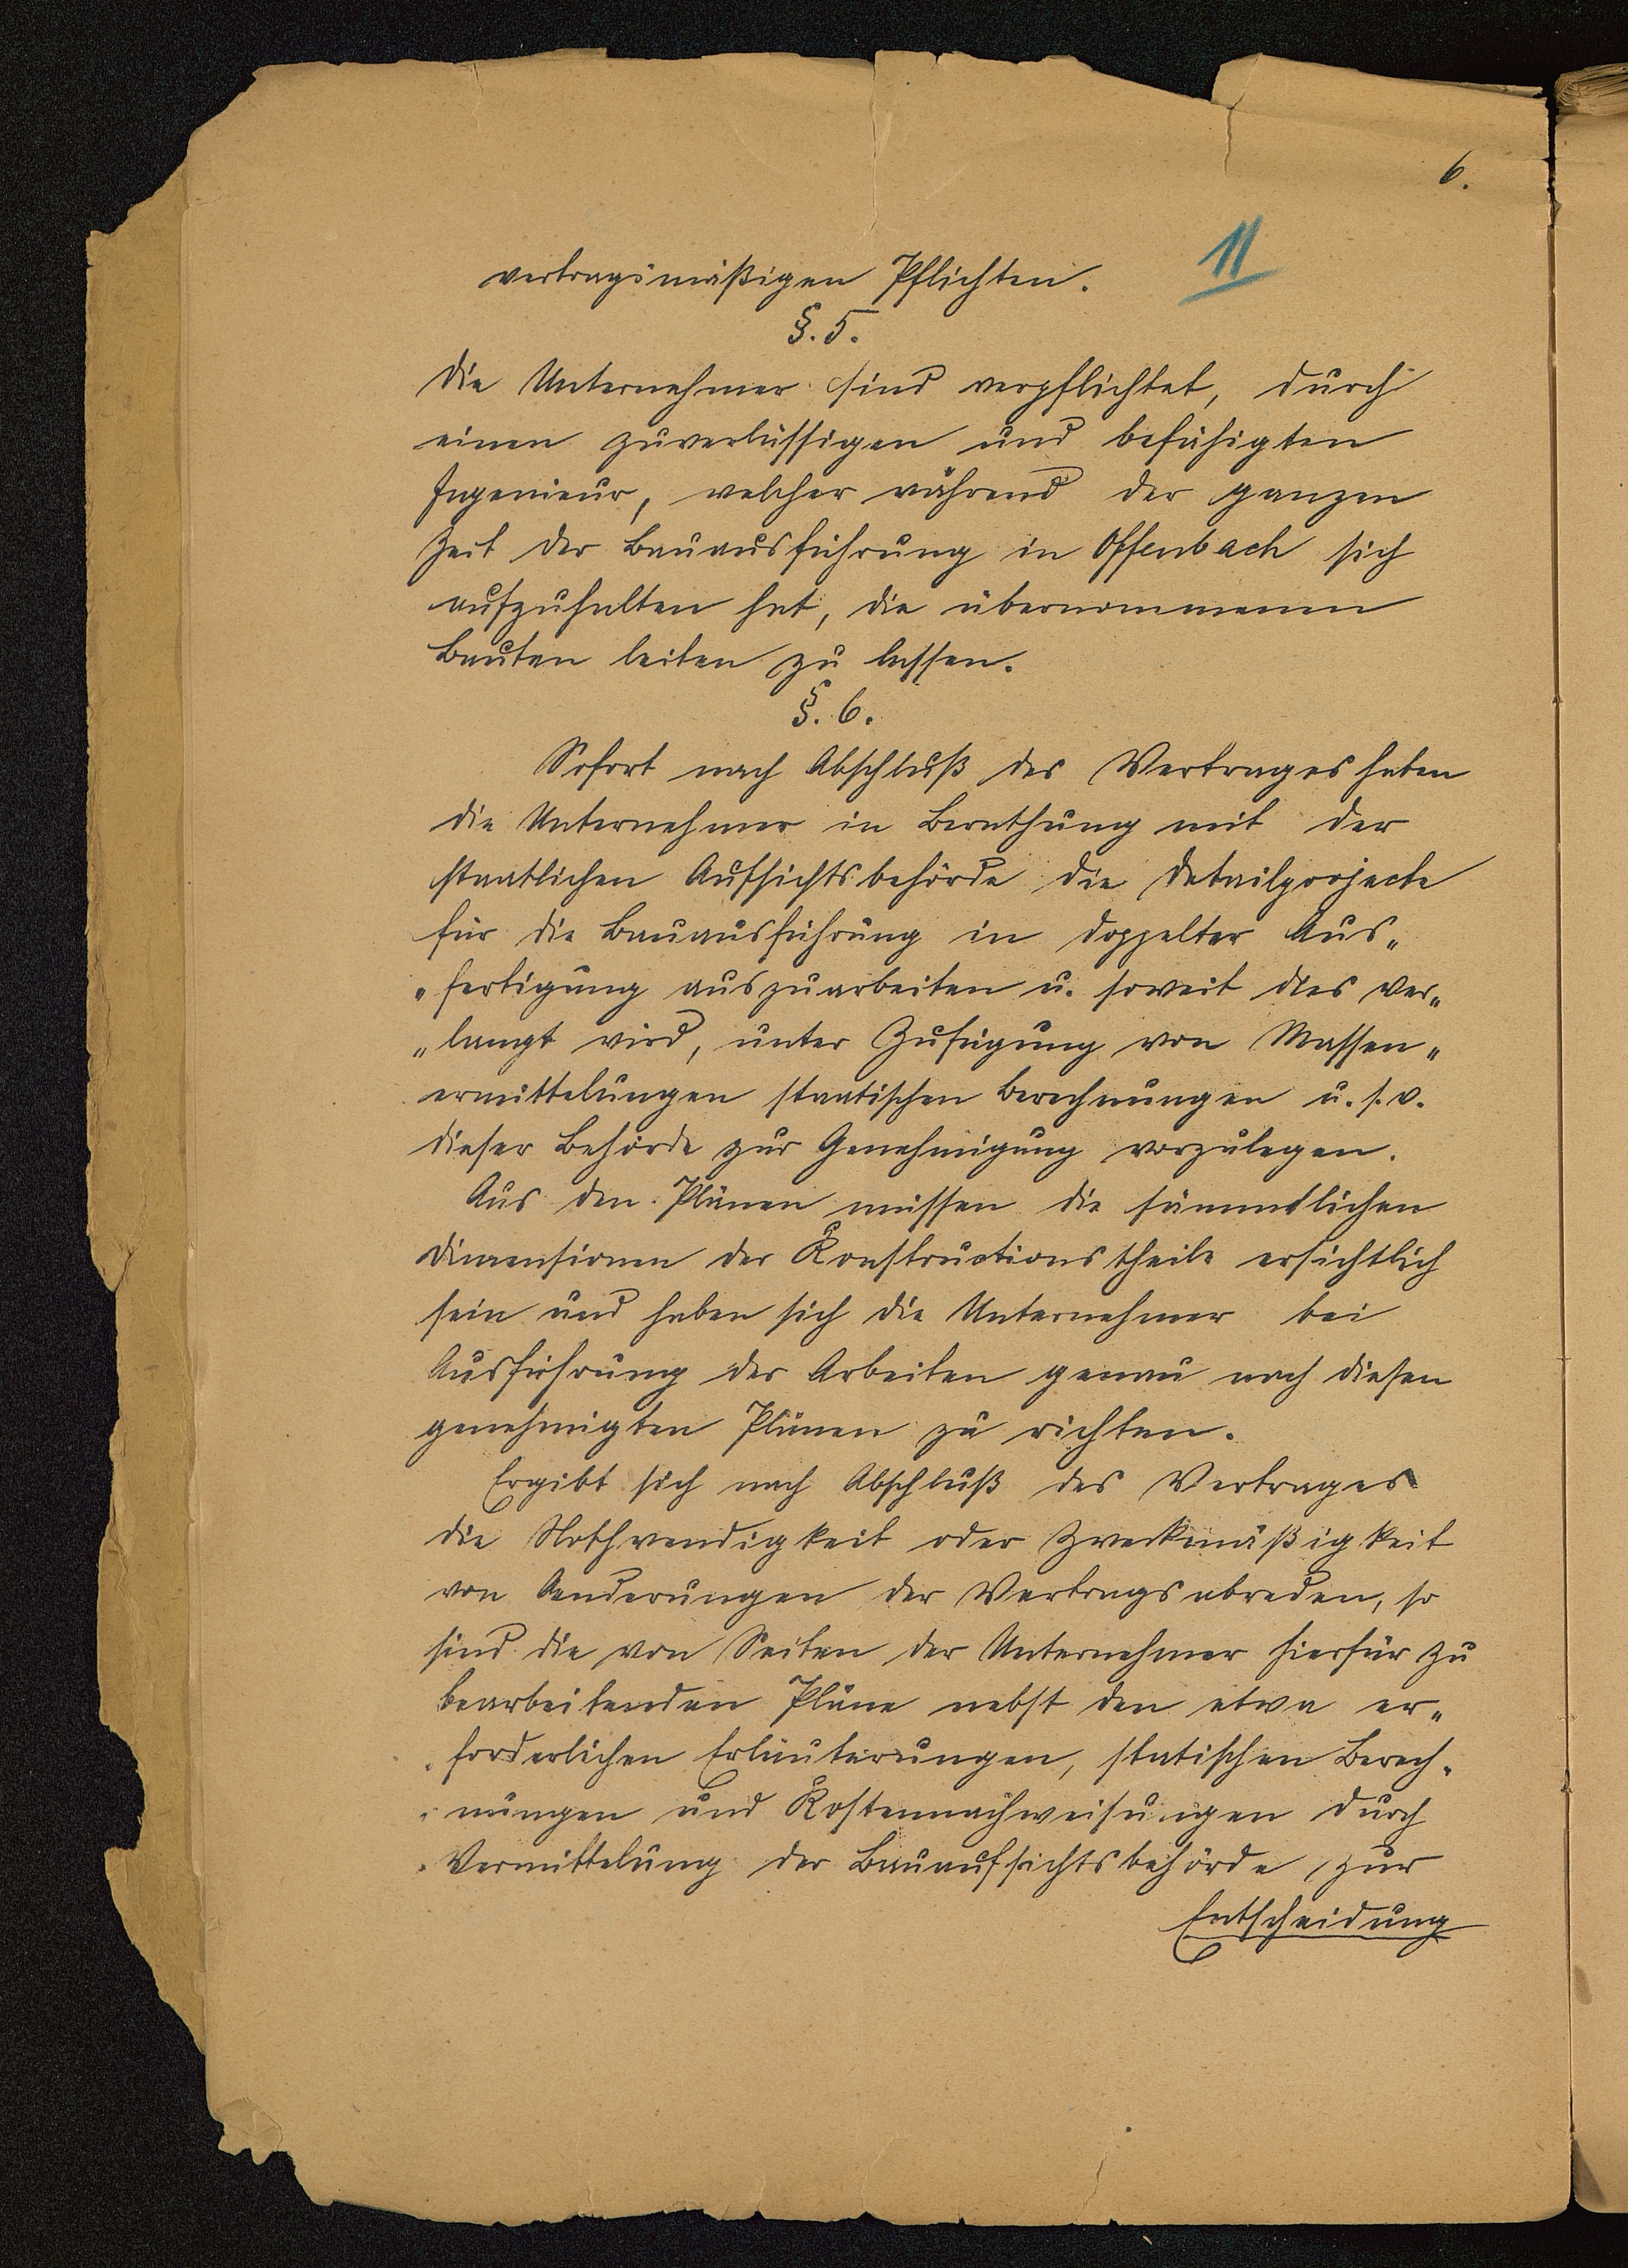 6.
11
vertragsmäßigen Pflichten.
§. 5.
Die Unternehmer sind verpflichtet, durch
einen zuverlässigen und befähigten
Ingenieur, welcher während der ganzen
Zeit der Bauausführung in Offenbach sich
aufzuhalten hat, die übernommenen
Bauten leiten zu lassen.
§. 6.
Sofort nach Abschluß des Vertrages haben
die Unternehmer in Berathung mit der
staatlichen Aufsichtsbehörde die Detailprojecte
für die Bauausführung in doppelter Aus„
„fertigung auszuarbeiten u. soweit dies ver„
„langt wird, unter Zufügung von Massen„
ermittelungen staatischen Berechnungen u. s. w.
dieser Behörde zur Genehmigung vorzulegen.
Aus den Plänen müssen die sämmtlichen
Dimensionen der Konstructionstheile ersichtlich
sein und haben sich die Unternehmer bei
Ausführung der Arbeiten genau nach diesen
genehmigten Plänen zu richten.
Ergibt sich nach Abschluß des Vertrages
die Nothwendigkeit oder Zweckmäßigkeit
von Aenderungen der Vertragsabreden, so
sind die von Seiten der Unternehmer hierfür zu
bearbeitenden Pläne nebst den etwa er„
„forderlichen Erläuterungen, statischen Berech„
„nungen und Kostennachweisungen durch
Vermittelung der Bauaufsichtsbehörde, zur
Entscheidung